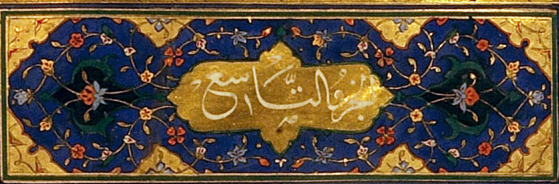 الجزو التاسع